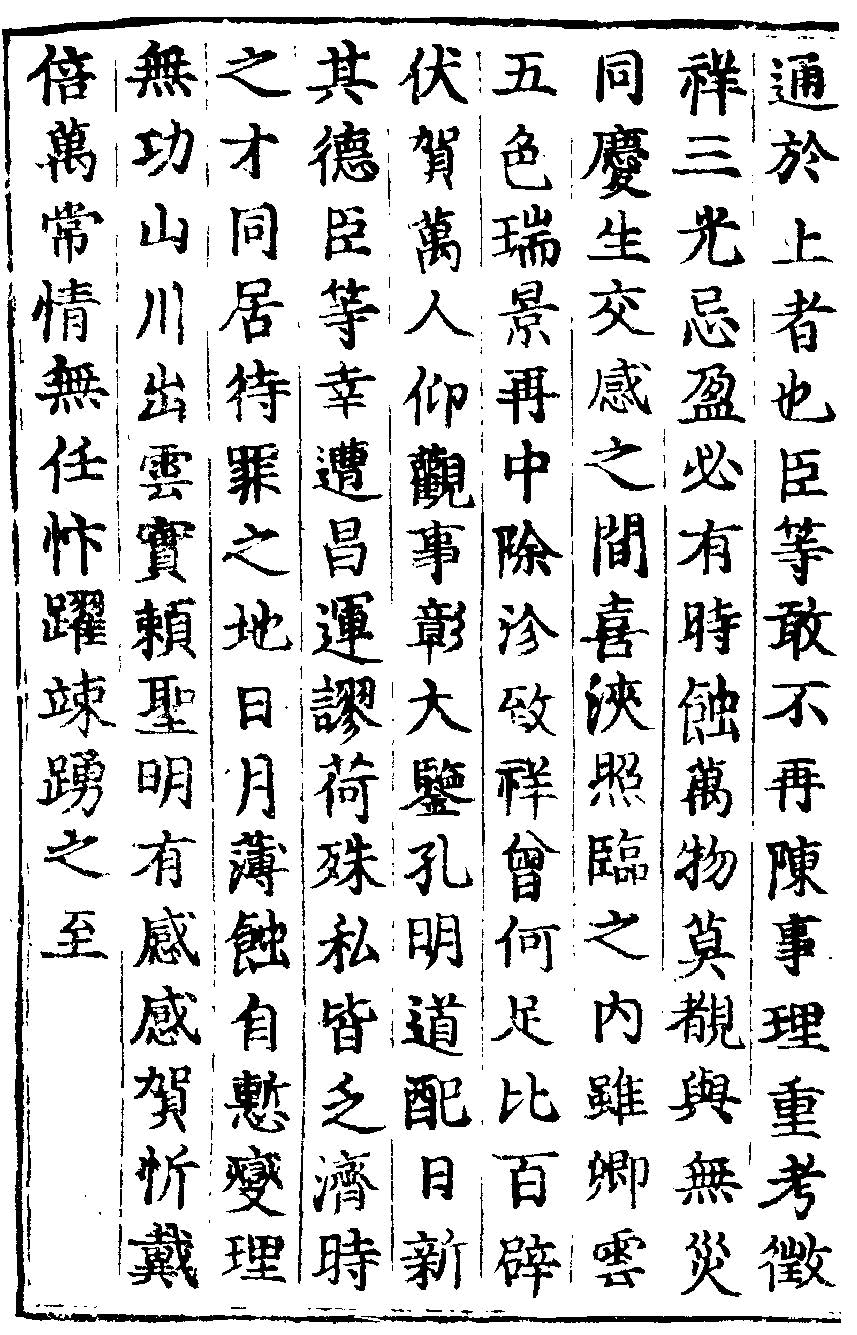 通於上者也臣等敢不再陳事理重考徵
祥三光忌盈必有時蝕萬物莫覩與無災
同慶生交感之間喜浹照臨之內雖卿雲
五色瑞景再中除沴致祥曾何足比百辟
伏賀萬人仰觀事彰大鑒孔明道配日新
其德臣等幸遭昌運謬荷殊私皆乏濟時
之才同居待罪之地日月薄蝕自慙燮理
無功山川出雲實賴聖明有感感賀忻戴
倍萬常情無任忭躍竦踴之至